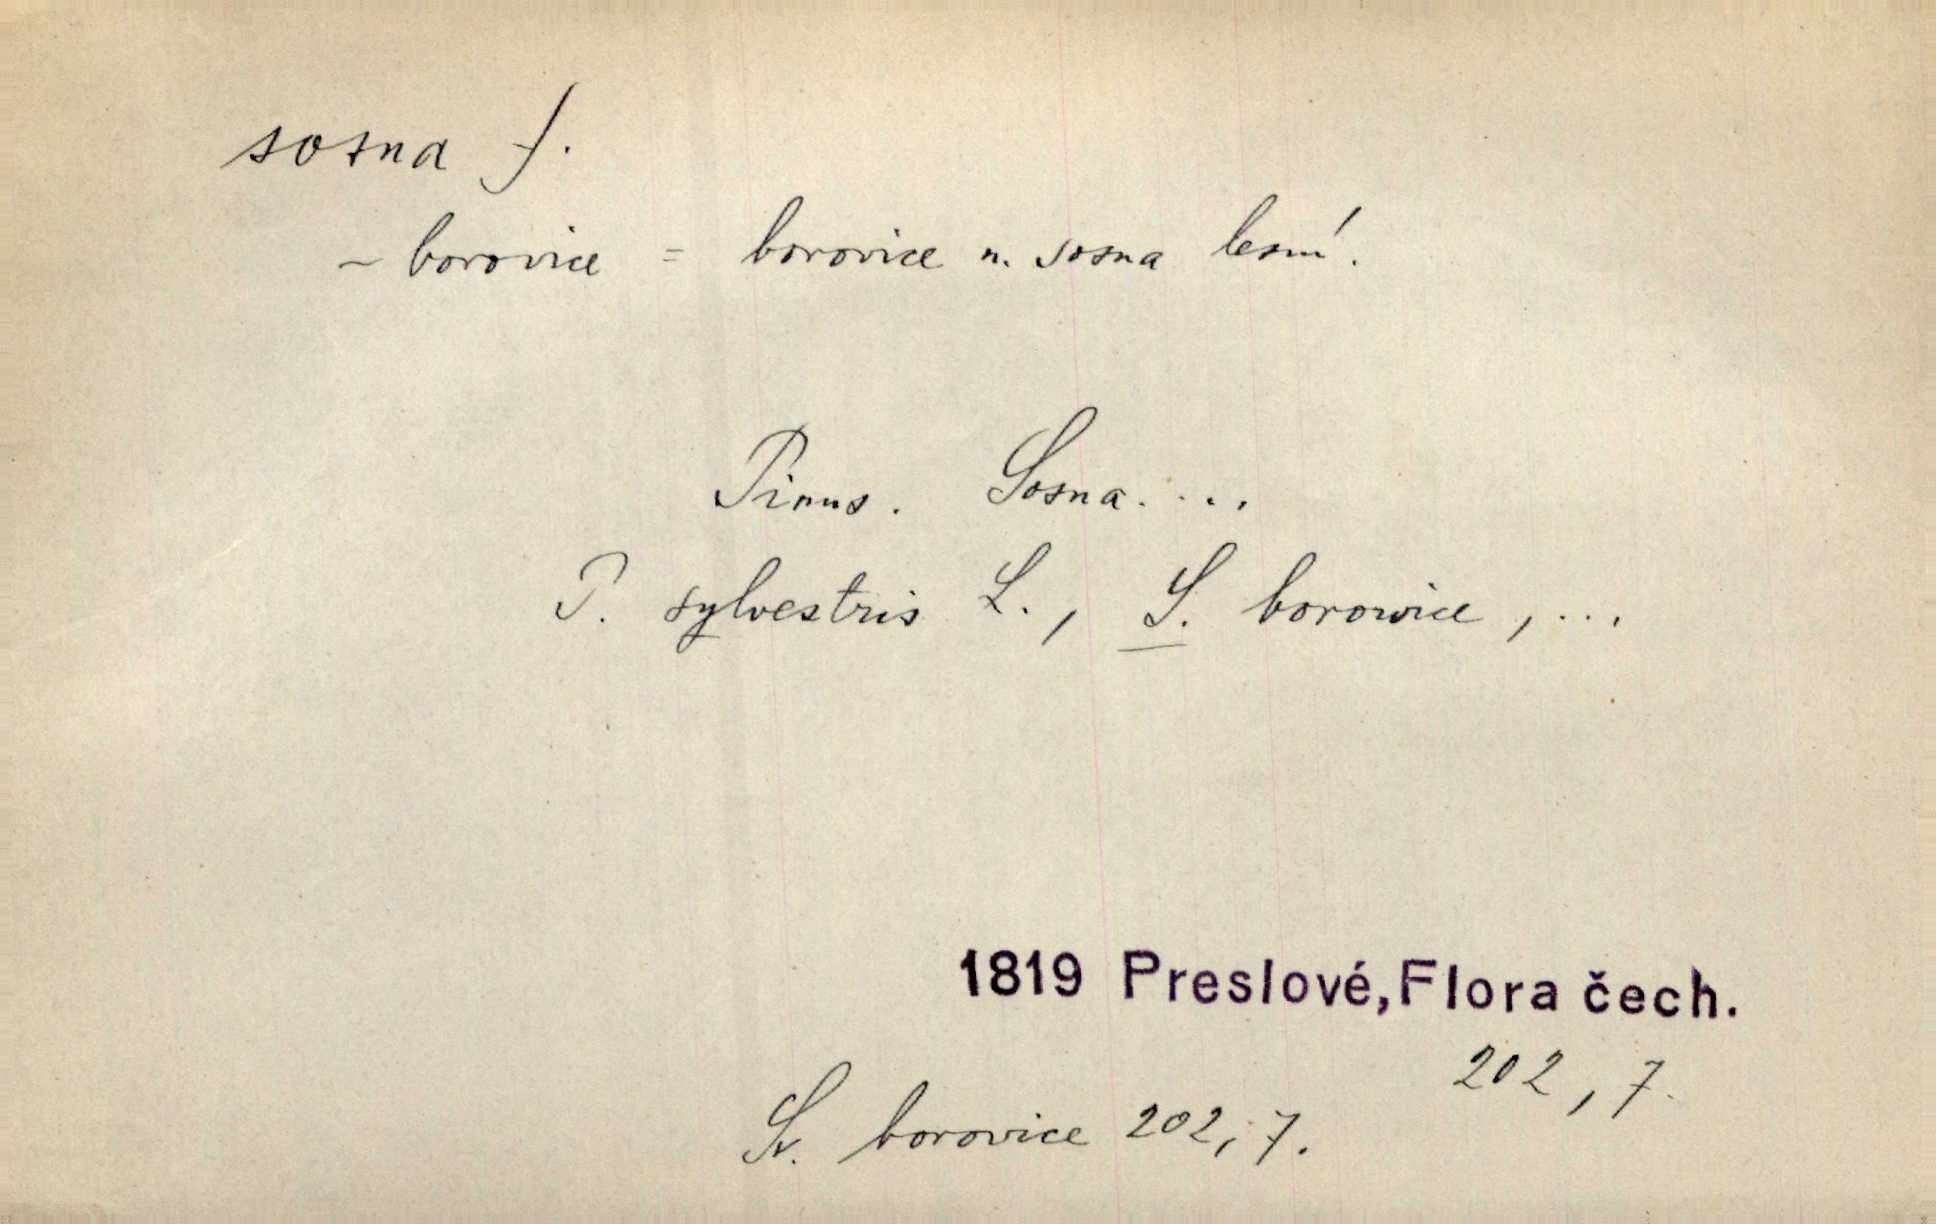 sosna f.
~ borovice = borovice n. sosna lesní.
Pinus. Sosna....
P. sylvestris L., S. borowice, ...
1819 Preslové, Flora čech.
202, 7.
Sv. borovice 202, 7.